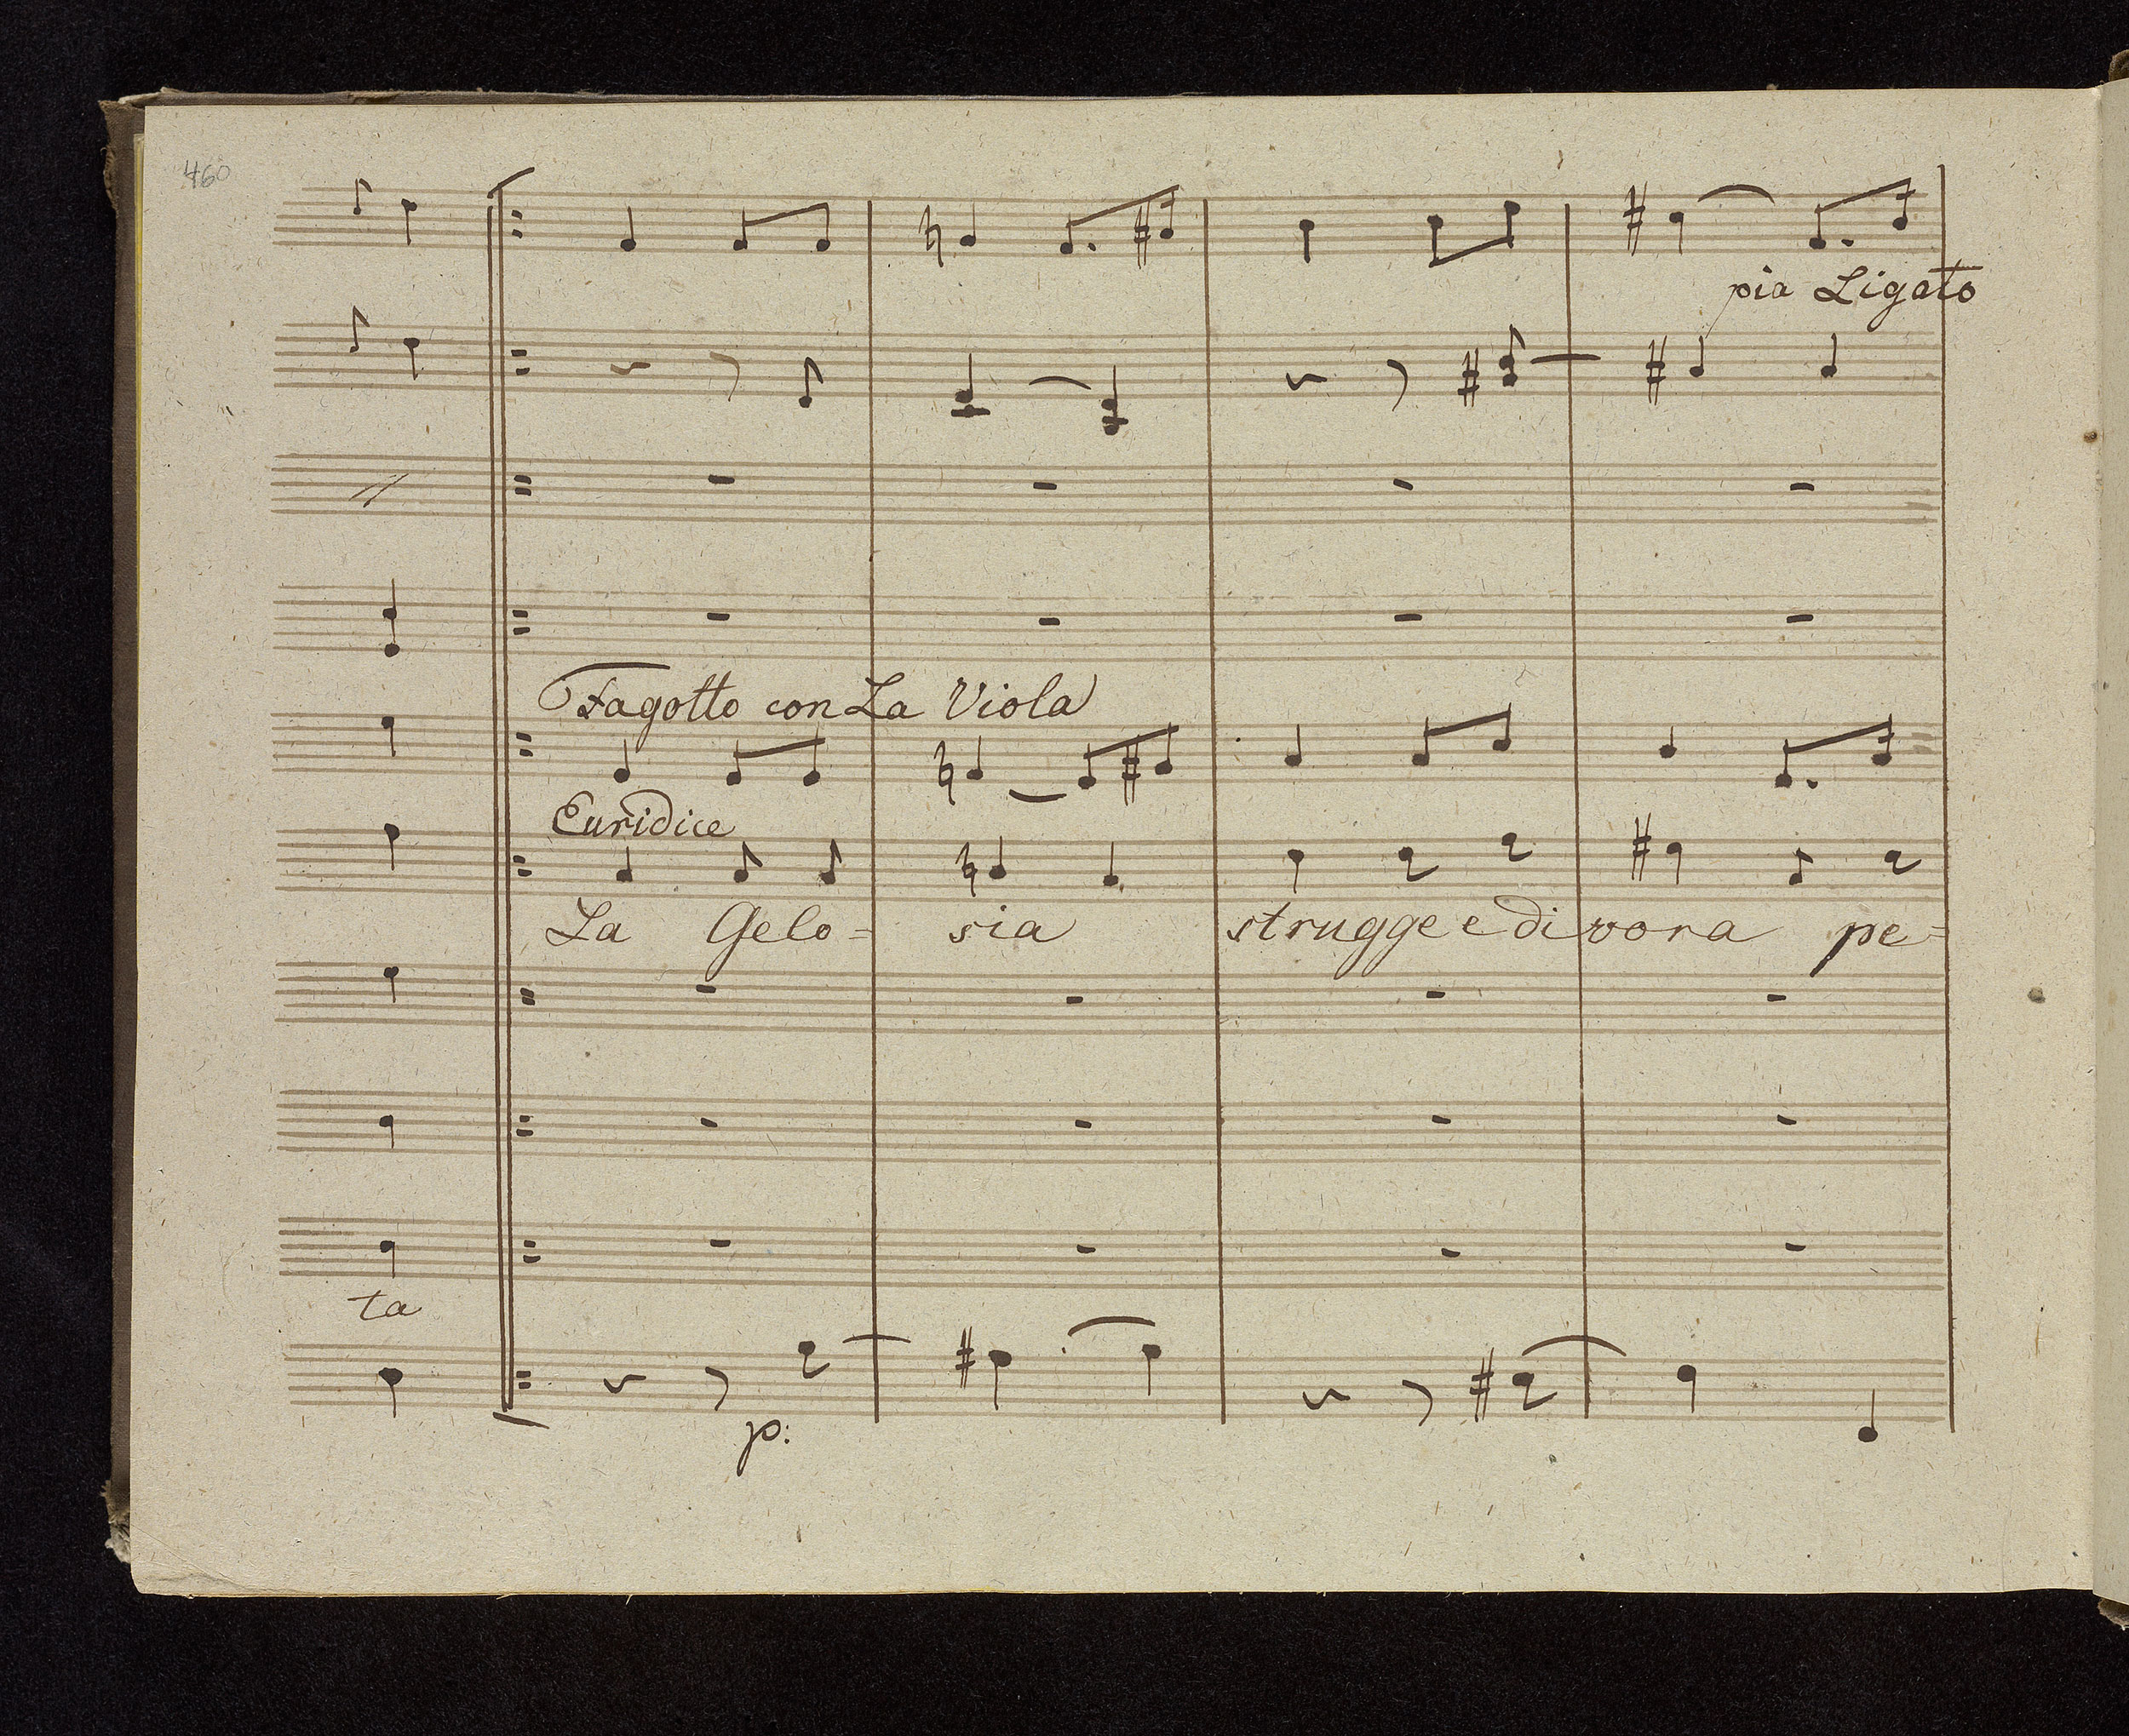 460
pia Ligato
Fagotto con La Viola
Euridice
La Gelo= sia strugge e divora pe=
ta
p: